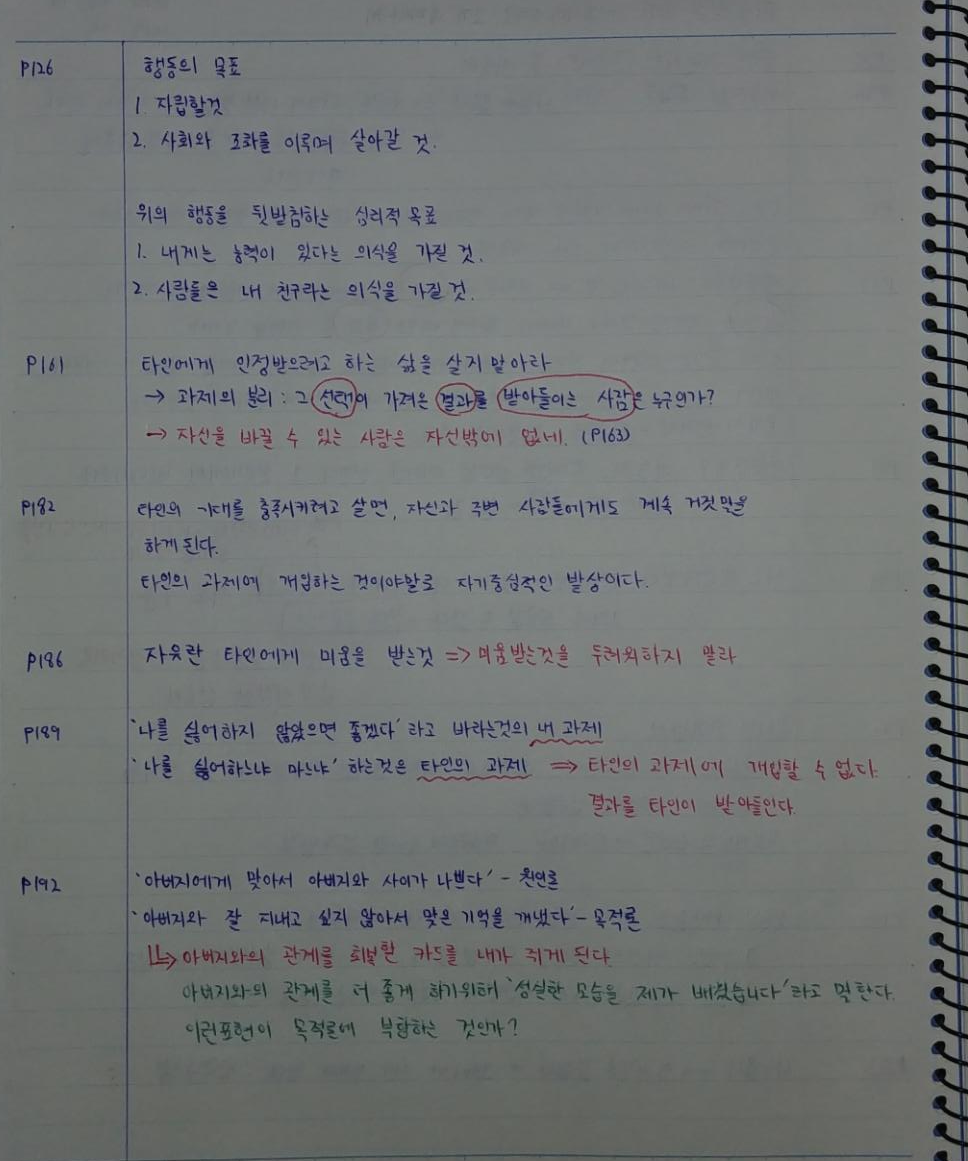 P126 행동의 목표
1. 자립할것
2. 사회와 조화를 이루며 살아갈 것.
위의 행동을 뒷받침하는 심리적 목표
1. 내게는 능력이 있다는 의식을 가질 것.
2. 사람들은 내 친구라는 의식을 가질 것.
P161 타인에게 인정받으려고 하는 삶을 살지 말아라
→ 과제의 분리 : 그 선택이 가져온 결과를 받아들이는 사람은 누구인가?
→ 자신을 바꿀 수 있는 사람은 자신밖에 없네. (P163)
P182 타인의 기대를 충족시키려고 살면, 자신과 주변 사람들에게도 계속 거짓말을
하게 된다.
타인의 과제에 개입하는 것이야말로 자기중심적인 발상이다.
P186 자유란 타인에게 미움을 받는것 => 미움받는것을 두려워하지 말라
P189 '나를 싫어하지 않았으면 좋겠다' 라고 바라는것의 내 과제
'나를 싫어하느냐 마느냐' 하는것은 타인의 과제 => 타인의 과제에 개입할 수 없다.
결과를 타인이 받아들인다.
P192 '아버지에게 맞아서 아버지와 사이가 나쁘다' - 원인론
'아버지와 잘 지내고 싶지 않아서 맞은 기억을 꺼냈다' - 목적론
↳ 아버지와의 관계를 회복할 카드를 내가 쥐게 된다
아버지와의 관계를 더 좋게 하기위해 '성실한 모습을 제가 배웠습니다' 라고 말한다.
이런표현이 목적론에 부합하는 것인가?